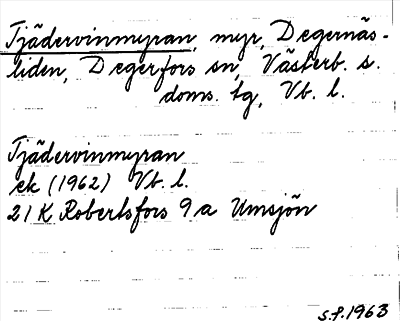 Tjädervinmyran, myr, Degernäs-
liden, Degerfors sn, Västerb. s.
doms. tg, Vb. l.
Tjädervinmyran
ek (1962) Vb. l.
21 K Robertsfors 9 a Umsjön
s.f. 1963